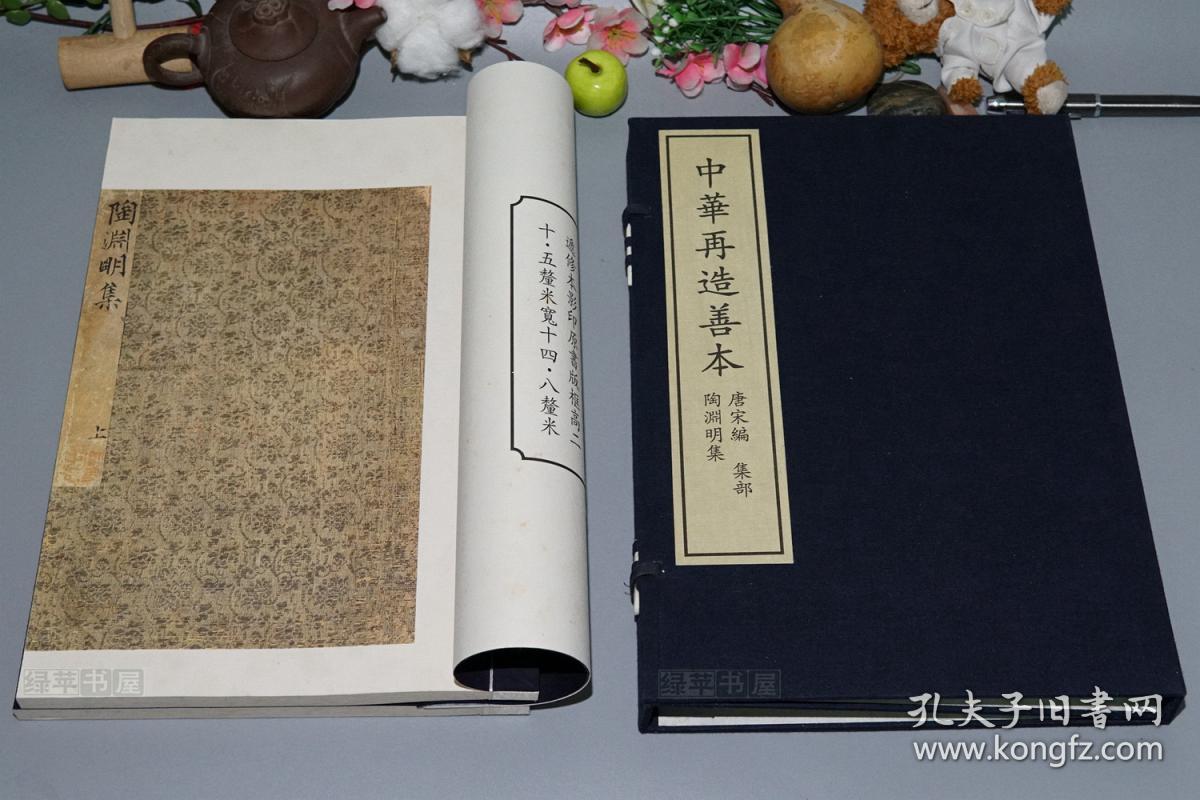 陶淵明集
上
遞修本影印原書版框高二
十·五釐米寬十四·八釐米
中華再造善本
唐宋編 集部
陶淵明集
绿苹书屋
绿苹书屋
孔夫子旧書网
www.kongfz.com